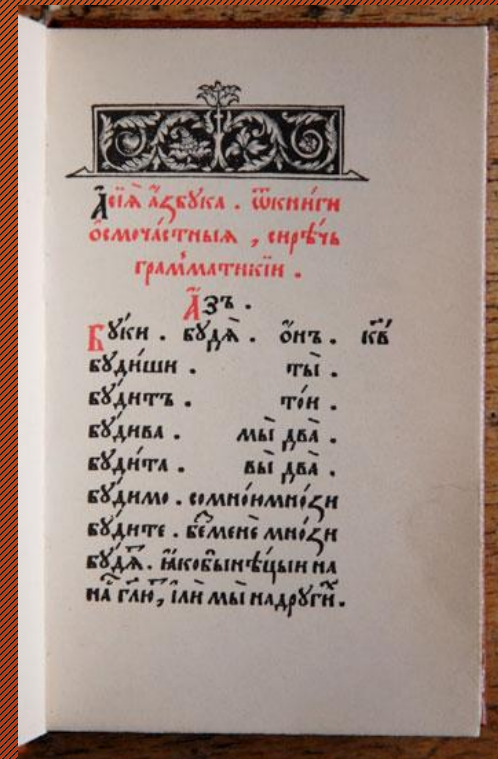 А҆сїѧ҆̀ а҆́збꙋка . ѿкни́ги
ѻ҆смоча́стныѧ , си́рѣчь
грам̾ма́тикїи .
А҆́зъ .
Бꙋ́ки . бꙋдѧ̀ . ѻ҆́нъ . к҃в
бꙋ́диши . ты̀ .
бꙋ́дитъ . то́и .
бꙋ́дива . мы̀ два̀ .
бꙋди́та . вы̀ два̀ .
бꙋ́димо . сомно́имно́ѕи
бꙋ́дите . беⷥменє̀ мно́ѕи
бꙋ́дѧⷮ . ꙗ҆́кобынѣ́цыи на
наⷭ гл҃ю , и҆лѝ мы̀ надрꙋги́ⷯ .